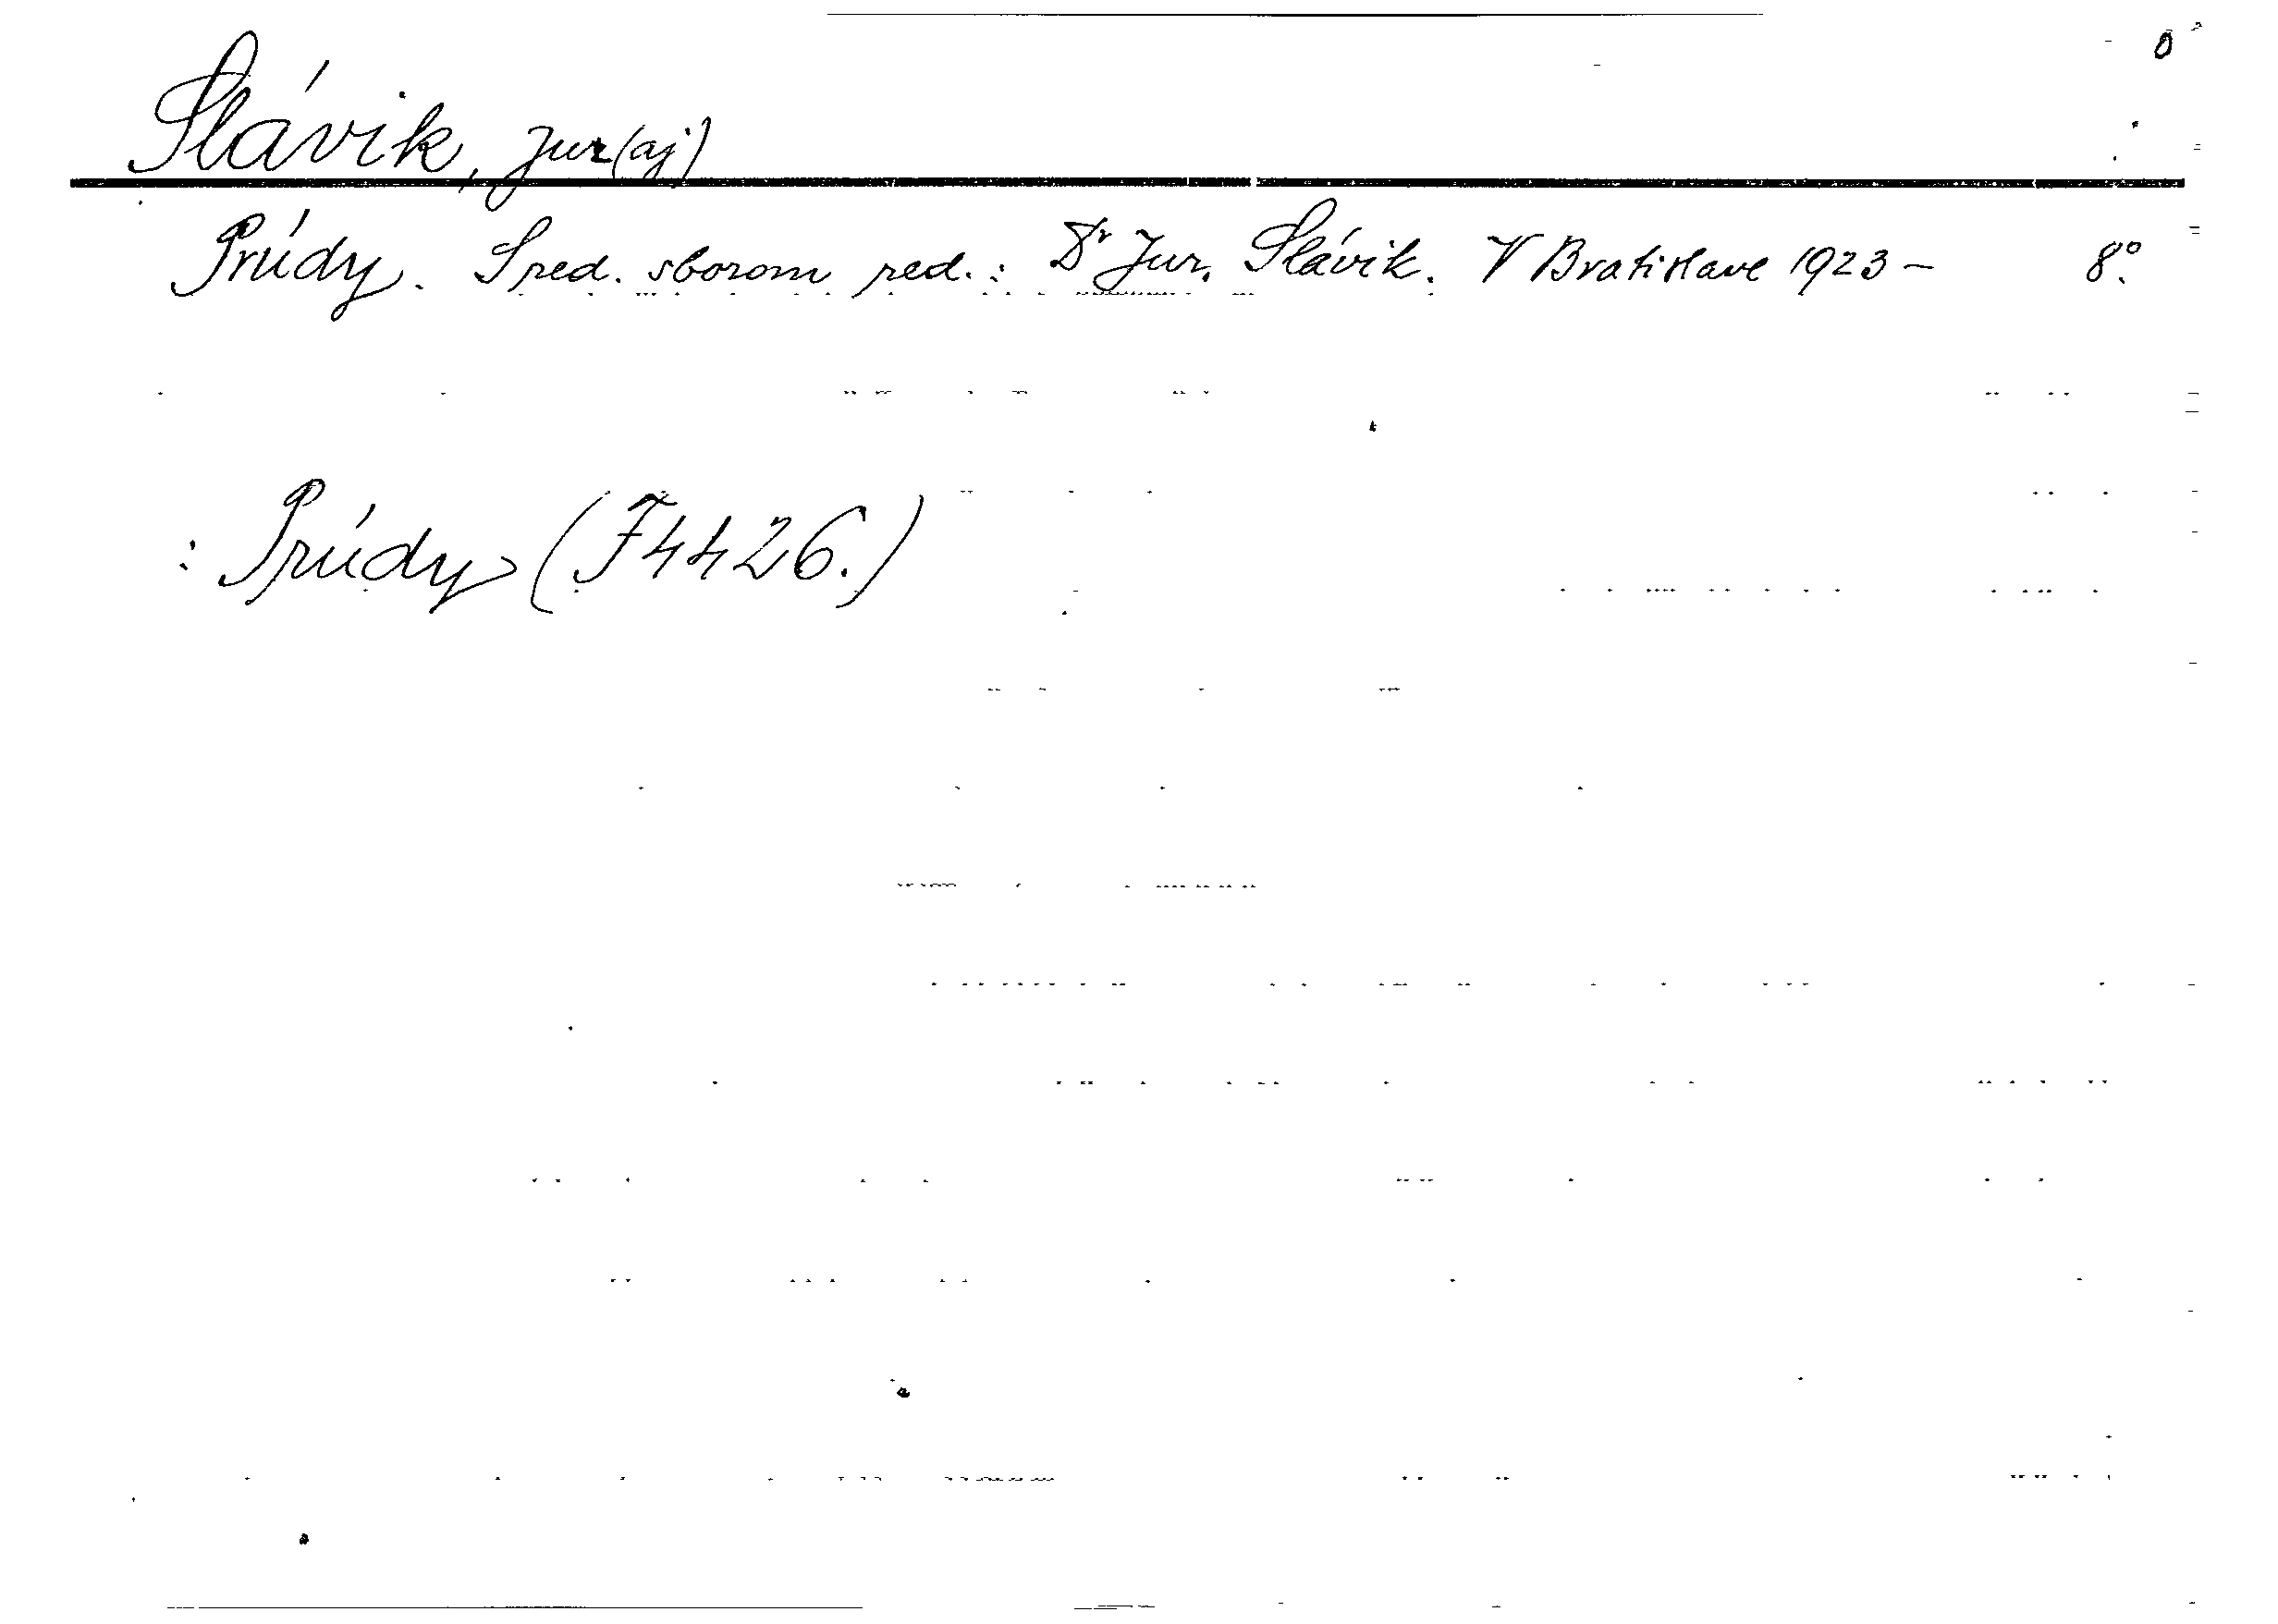 Slávik, Jur(aj)
Prúdy. S red. sborom red.: Dr Jur. Slávik. V Bratislave 1923 – 8°.
: Prúdy (F4426.)